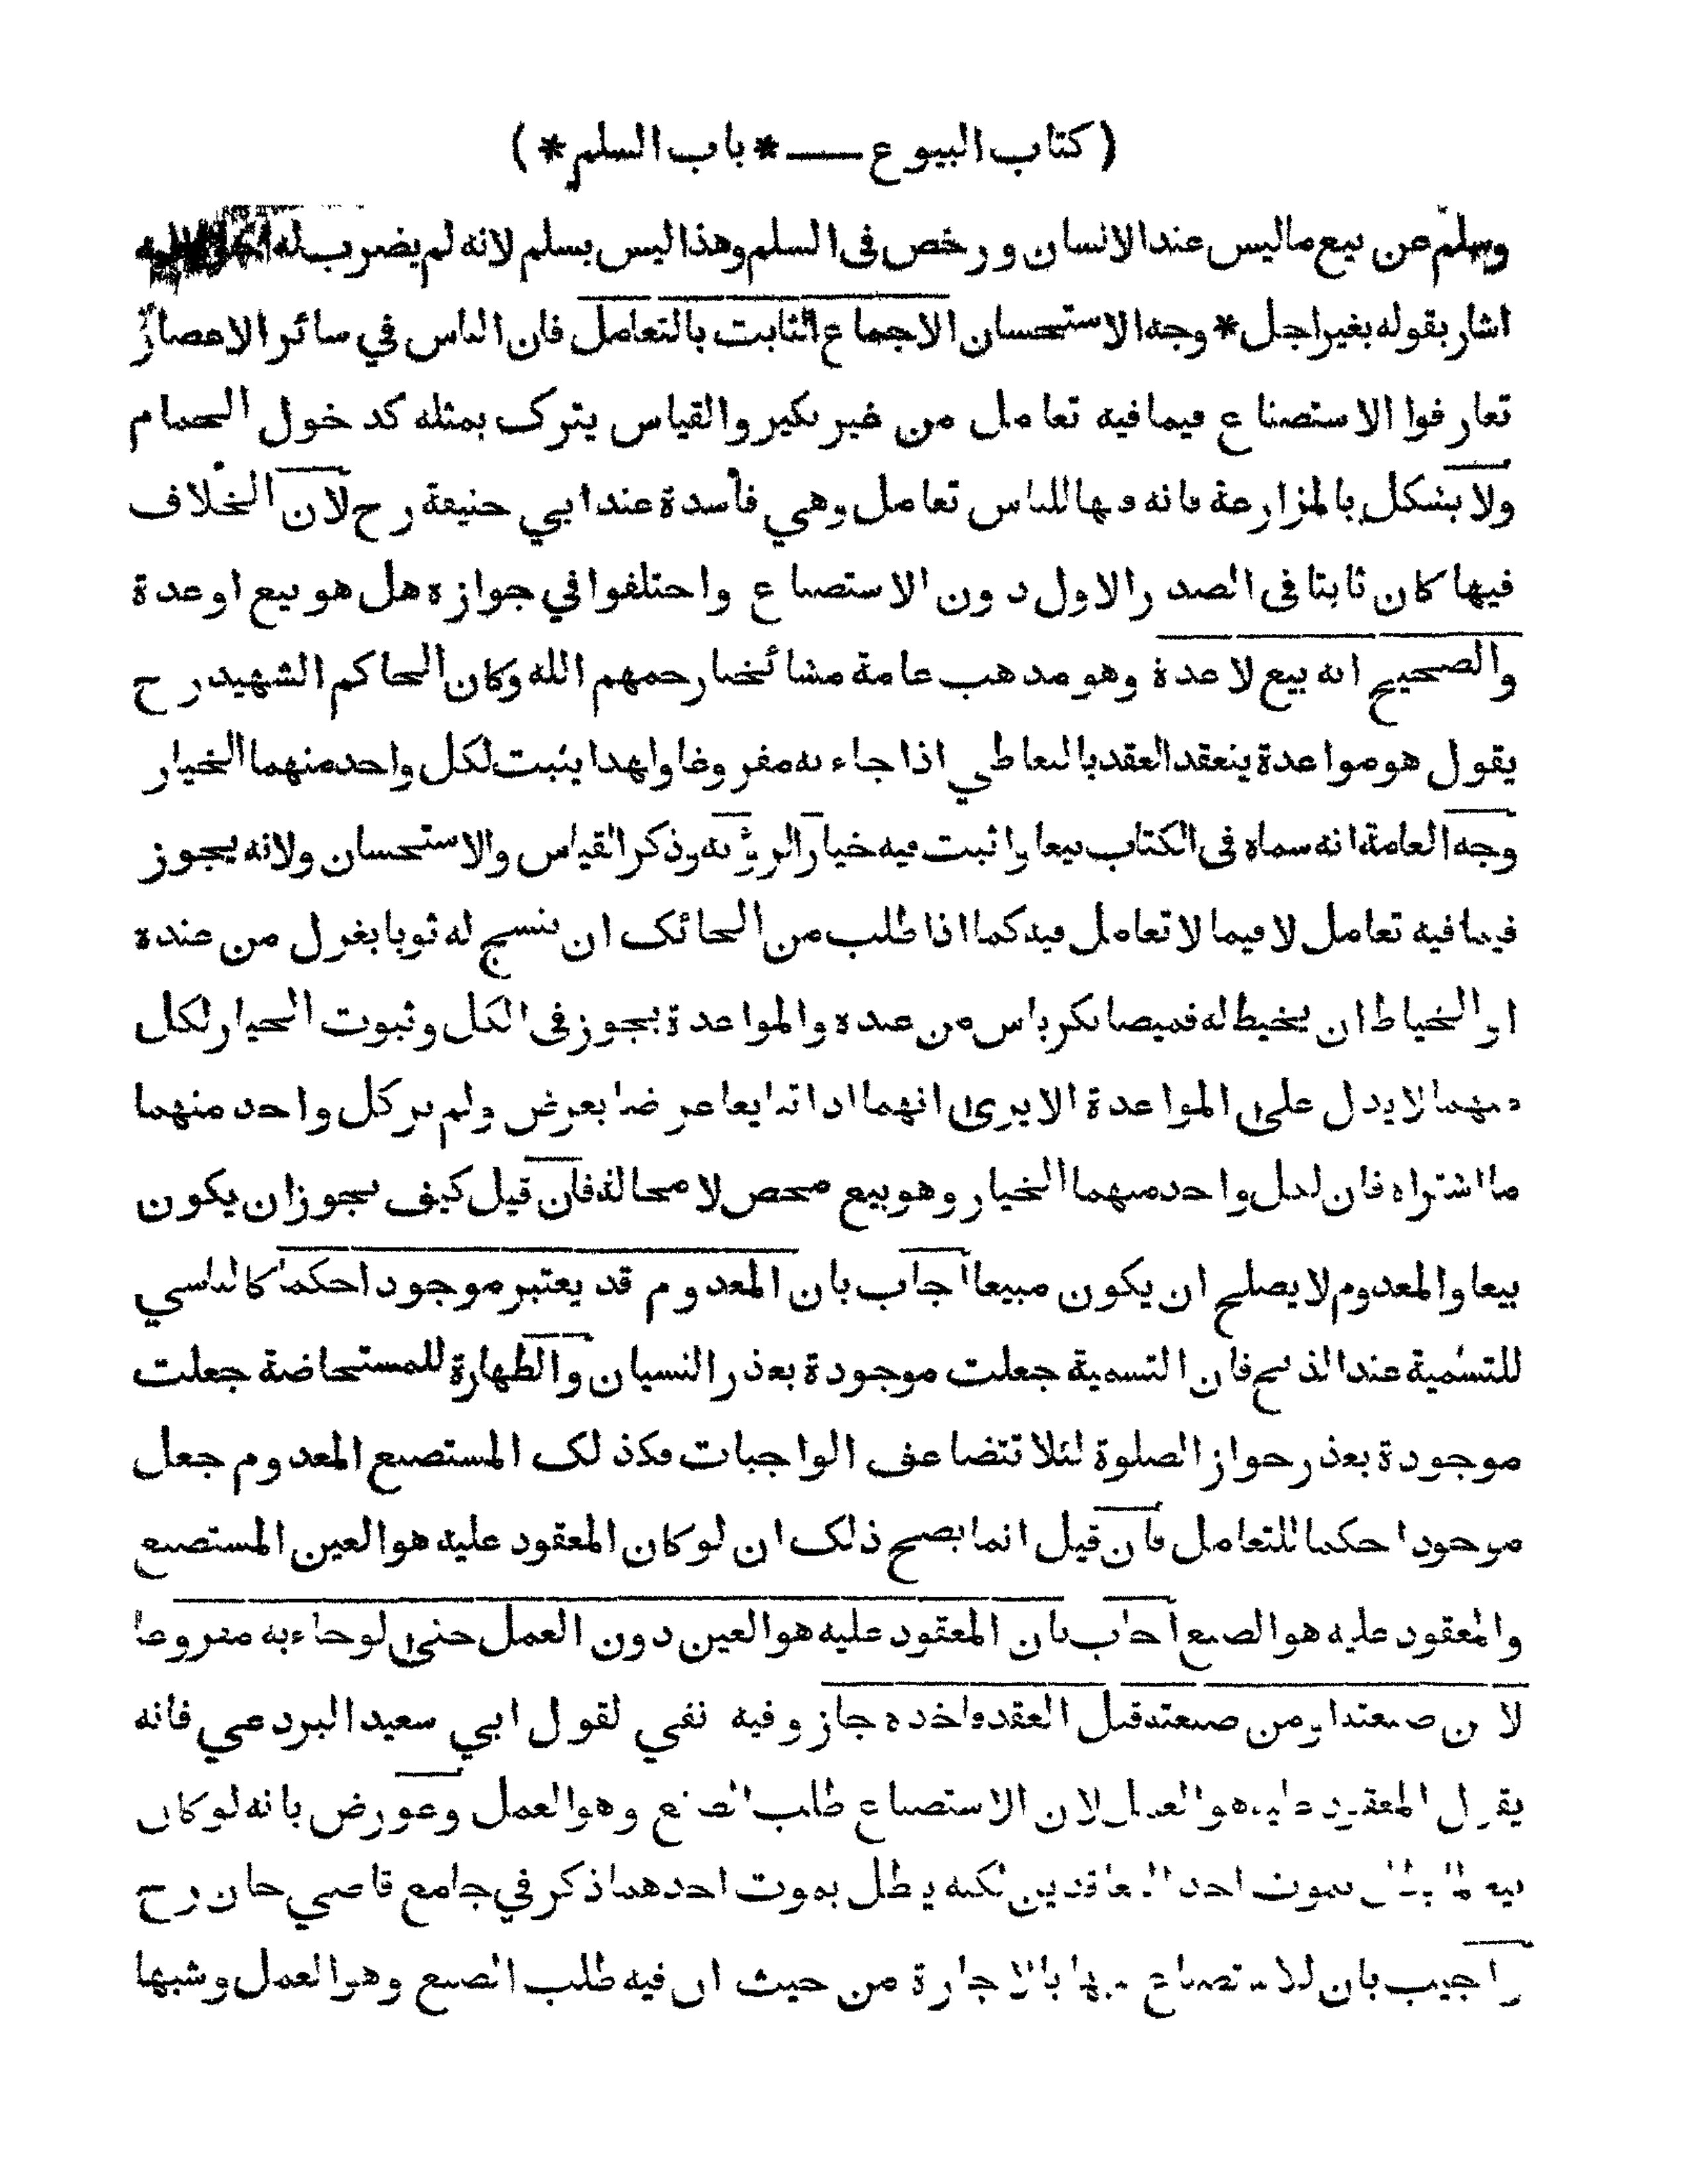 ( كتاب البيوع — * باب السلم * )
وسلم عن بيع ماليس عند الانسان ورخص فى السلم وهذا ليس بسلم لانه لم يضرب له
اشار بقوله بغير اجل * وجه الاستحسان الاجماع الثابت بالتعامل فان الناس في سائر الاعصار
تعارفوا الاستصناع فيما فيه تعامل من غير نكير والقياس يترك بمثله كدخول الحمام
ولا يشكل بالمزارعة فانه فيها للناس تعامل وهي فاسدة عند ابي حنيفة رح لان الخلاف
فيها كان ثابتا فى الصدر الاول دون الاستصناع واختلفوا في جوازه هل هو بيع او عدة
والصحيح انه بيع لا عدة وهو مذهب عامة مشائخنا رحمهم الله وكان الحاكم الشهيد رح
يقول هو مواعدة ينعقد العقد بالتعاطي اذا جاء به مفروغا ولهذا يثبت لكل واحد منهما الخيار
وجه العامة انه سماه فى الكتاب بيعا واثبت فيه خيار الرؤية وذكر القياس والاستحسان ولانه يجوز
فيما فيه تعامل لا فيما لا تعامل فيه كما اذا طلب من الحائك ان ينسج له ثوبا بغزل من عنده
او الخياط ان يخيط له قميصا بكرباس من عنده والمواعدة يجوز فى الكل وثبوت الخيار لكل
منهما لا يدل على المواعدة الا يرى انهما اذا تبايعا عرضا بعرض ولم ير كل واحد منهما
ما اشتراه فان لكل واحد منهما الخيار وهو بيع محض لا محالة فان قيل كيف يجوز ان يكون
بيعا والمعدوم لا يصلح ان يكون مبيعا اجاب بان المعدوم قد يعتبر موجودا حكما كالناسي
للتسمية عند الذبح فان التسمية جعلت موجودة بعذر النسيان والطهارة للمستحاضة جعلت
موجودة بعذر جواز الصلوة لئلا تتضاعف الواجبات فكذلك المستصنع المعدوم جعل
موجودا حكما للتعامل فان قيل انما يصح ذلك ان لو كان المعقود عليه هو العين المستصنع
والمعقود عليه هو الصنع اجاب بان المعقود عليه هو العين دون العمل حتى لو جاء به مفروغا
لا من صنعته او من صنعته قبل العقد واخذه جاز وفيه نفي لقول ابي سعيد البردعي فانه
يقول المعقود عليه هو العمل لان الاستصناع طلب الصنع وهو العمل وعورض بانه لو كان
بيعا لما بطل بموت احد المتعاقدين لكنه يبطل بموت احدهما ذكر في جامع قاضي خان رح
واجيب بان للاستصناع شبها بالاجارة من حيث ان فيه طلب الصنع وهو العمل وشبها